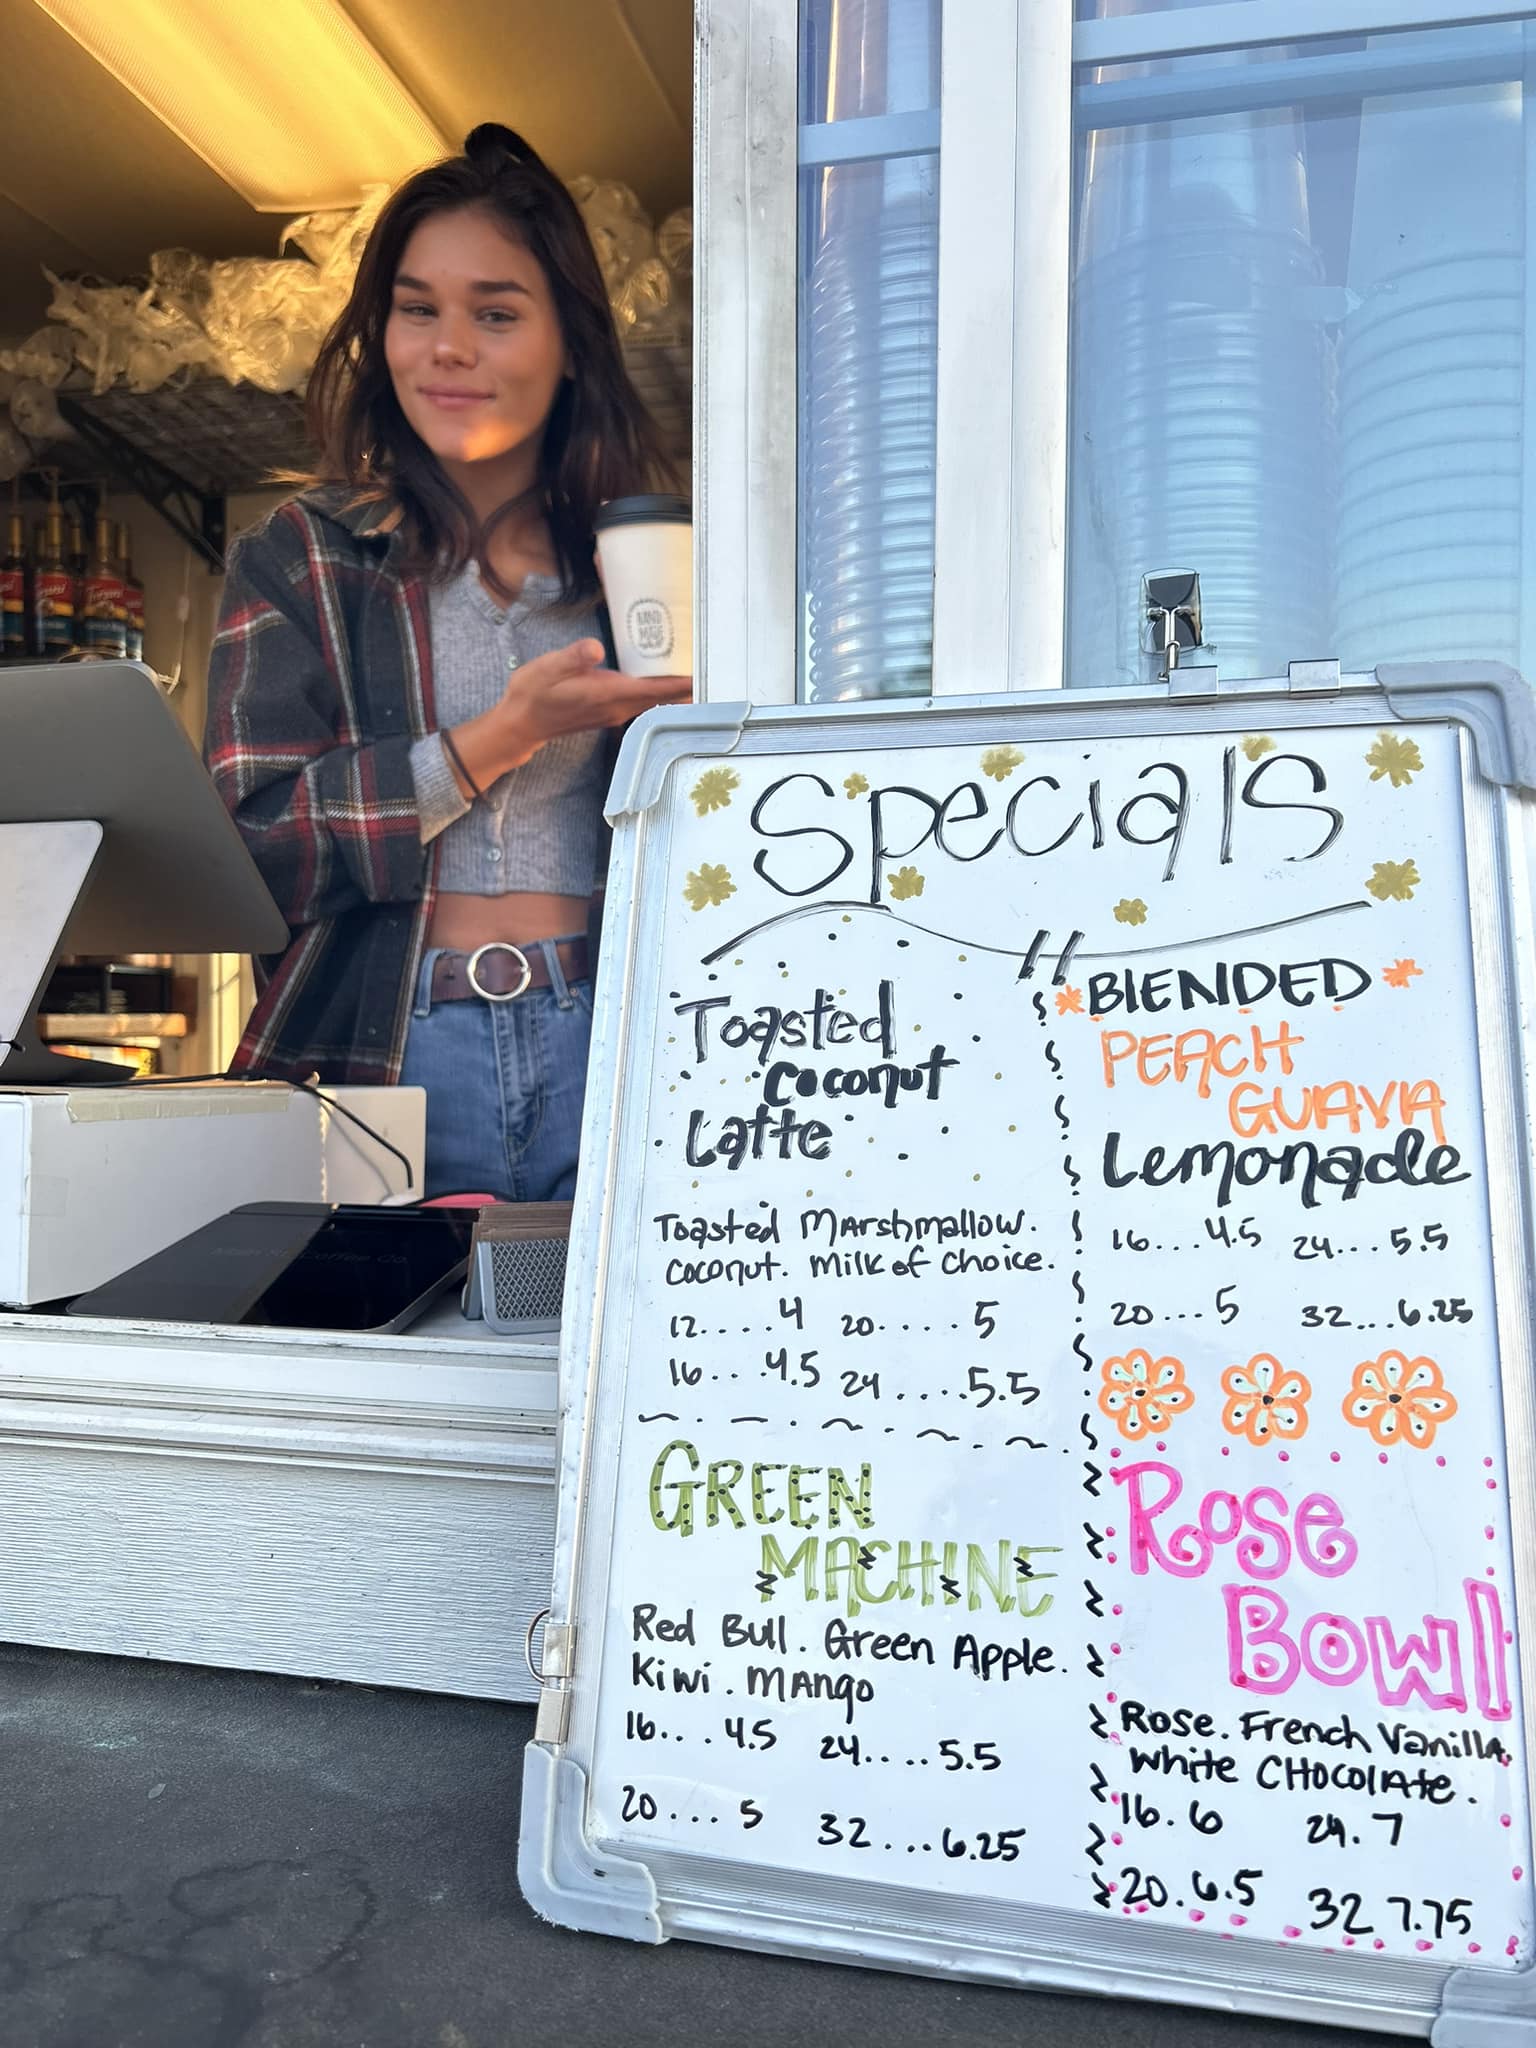 Torani
Torani
HAND
MADE
Main St Coffee Co.
Specials
Toasted
coconut
Latte
Toasted Marshmallow.
coconut. Milk of choice.
12.....4 20.....5
16...4.5 24.....5.5
GREEN
MACHINE
Red Bull. Green Apple.
Kiwi. Mango
16...4.5 24....5.5
20...5 32...6.25
BlENDED
PEACH
GUAVA
Lemonade
16...4.5 24...5.5
20...5 32...6.25
Rose
Bowl
Rose. French Vanilla.
White CHocolAte.
16.6 24.7
20.6.5 32 7.75